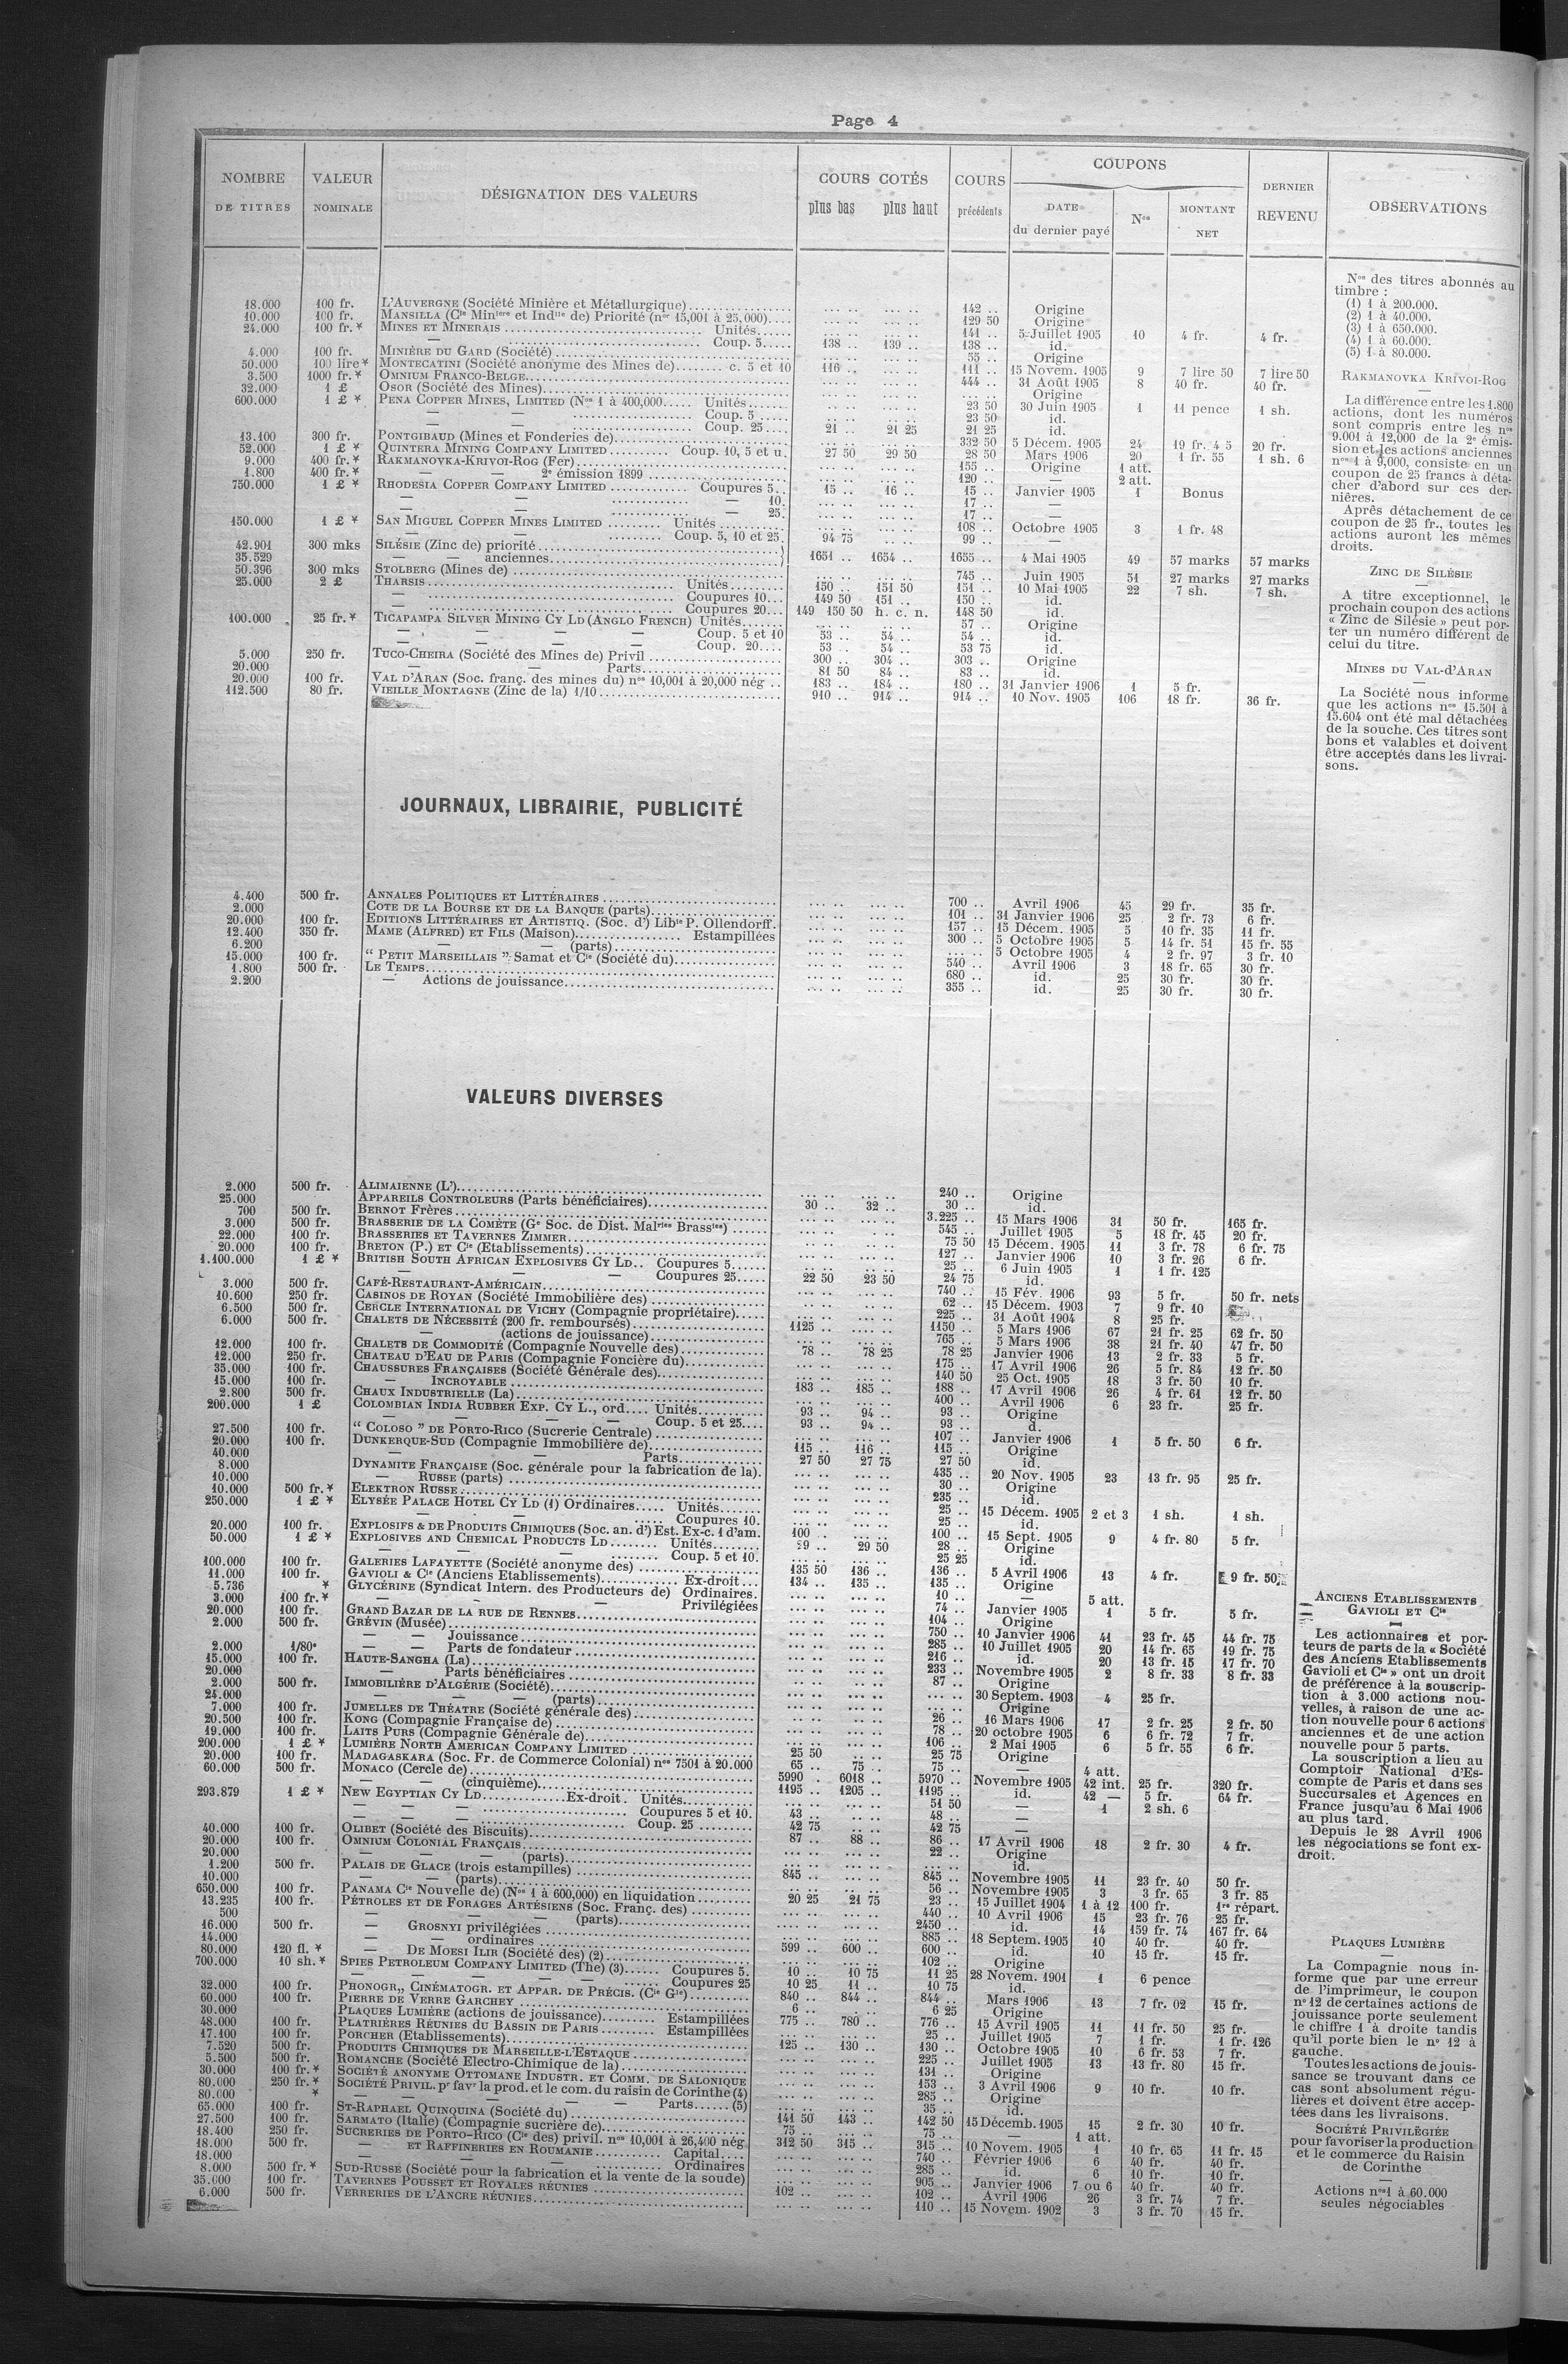 Page 4
NOMBRE DE TITRES | VALEUR NOMINALE | DÉSIGNATION DES VALEURS | COURS COTÉS plus bas plus haut | COURS précédents | COUPONS DATE du dernier payé | Nos | MONTANT NET | DERNIER REVENU | OBSERVATIONS
18.000 100 fr. L'AUVERGNE (Société Minière et Métallurgique) 142 .. Origine
10.000 100 fr. MANSILLA (Cie Minière et Indlle de) Priorité (nos 15,001 à 25,000) 129 50 Origine
24.000 100 fr.* MINES ET MINERAIS Unités 141 .. 5 Juillet 1905 10 4 fr. 4 fr.
— Coup. 5 138 .. 139 .. 138 .. id.
4.000 100 fr. MINIÈRE DU GARD (Société) 55 .. Origine
50.000 100 lire* MONTECATINI (Société anonyme des Mines de) c. 5 et 10 116 .. 111 .. 15 Novem. 1905 9 7 lire 50 7 lire 50
3.500 1000 fr.* OMNIUM FRANCO-BELGE 444 .. 31 Août 1905 8 40 fr. 40 fr.
32.000 1 £ OSOR (Société des Mines) Origine
600.000 1 £ * PENA COPPER MINES, LIMITED (Nos 1 à 400,000 Unités 23 50 30 Juin 1905 1 11 pence 1 sh.
— — Coup. 5 23 50 id.
— — Coup. 25 21 .. 21 25 21 25 id.
13.100 300 fr. PONTGIBAUD (Mines et Fonderies de) 332 50 5 Décem. 1905 24 19 fr. 45 20 fr.
52.000 1 £ * QUINTERA MINING COMPANY LIMITED Coup. 10, 5 et u. 27 50 29 50 28 50 Mars 1906 20 1 fr. 55 1 sh. 6
9.000 400 fr.* RAKMANOVKA-KRIVOI-ROG (Fer) 155 .. Origine 1 att.
1.800 400 fr.* — — 2e émission 1899 120 .. — 2 att.
750.000 1 £ * RHODESIA COPPER COMPANY LIMITED Coupures 5 15 .. 16 .. 15 .. Janvier 1905 1 Bonus
— — — 10. 17 .. —
— — — 25. 17 .. —
150.000 1 £ * SAN MIGUEL COPPER MINES LIMITED Unités 108 .. Octobre 1905 3 1 fr. 48
— — Coup. 5, 10 et 25. 94 75 99 .. —
42.901 300 mks SILÉSIE (Zinc de) priorité
35.529 — — anciennes 1651 .. 1654 .. 1655 .. 4 Mai 1905 49 57 marks 57 marks
50.396 300 mks STOLBERG (Mines de) 745 .. Juin 1905 51 27 marks 27 marks
25.000 2 £ THARSIS Unités 150 .. 151 50 151 .. 10 Mai 1905 22 7 sh. 7 sh.
— Coupures 10 149 50 151 .. 150 .. id.
— Coupures 20 149 150 50 h. c. n. 148 50 id.
100.000 25 fr.* TICAPAMPA SILVER MINING CY LD (ANGLO FRENCH) Unités 57 .. Origine
— — — Coup. 5 et 10 53 .. 54 .. 54 .. id.
— — — Coup. 20 53 .. 54 .. 53 75 id.
5.000 250 fr. TUCO-CHEIRA (Société des Mines de) Privil 300 .. 304 .. 303 .. Origine
20.000 — — Parts 81 50 84 .. 83 .. id.
20.000 100 fr. VAL D'ARAN (Soc. franç. des mines du) nos 10,001 à 20,000 nég 183 .. 184 .. 180 .. 31 Janvier 1906 1 5 fr.
112.500 80 fr. VIEILLE MONTAGNE (Zinc de la) 1/10 910 .. 914 .. 914 .. 10 Nov. 1905 106 18 fr. 36 fr.
Nos des titres abonnés au
timbre :
(1) 1 à 200.000.
(2) 1 à 40.000.
(3) 1 à 650.000.
(4) 1 à 60.000.
(5) 1 à 80.000.
RAKMANOVKA KRIVOI-ROG
La différence entre les 1.800
actions, dont les numéros
sont compris entre les nos
9.001 à 12,000 de la 2e émis-
sion et les actions anciennes
nos 1 à 9,000, consiste en un
coupon de 25 francs à déta-
cher d'abord sur ces der-
nières.
Après détachement de ce
coupon de 25 fr., toutes les
actions auront les mêmes
droits.
ZINC DE SILÉSIE
A titre exceptionnel, le
prochain coupon des actions
« Zinc de Silésie » peut por-
ter un numéro différent de
celui du titre.
MINES DU VAL-D'ARAN
La Société nous informe
que les actions nos 15.501 à
15.604 ont été mal détachées
de la souche. Ces titres sont
bons et valables et doivent
être acceptés dans les livrai-
sons.
JOURNAUX, LIBRAIRIE, PUBLICITÉ
4.400 500 fr. ANNALES POLITIQUES ET LITTÉRAIRES 700 .. Avril 1906 45 29 fr. 35 fr.
2.000 COTE DE LA BOURSE ET DE LA BANQUE (parts) 101 .. 31 Janvier 1906 25 2 fr. 73 6 fr.
20.000 100 fr. EDITIONS LITTÉRAIRES ET ARTISTIQ. (Soc. d') Libie P. Ollendorff. 157 .. 15 Décem. 1905 5 10 fr. 35 11 fr.
12.400 350 fr. MAME (ALFRED) ET FILS (Maison) Estampillées 300 .. 5 Octobre 1905 5 14 fr. 51 15 fr. 55
6.200 — — (parts) 5 Octobre 1905 4 2 fr. 97 3 fr. 10
15.000 100 fr. “ PETIT MARSEILLAIS ” Samat et Cie (Société du) 540 .. Avril 1906 3 18 fr. 65 30 fr.
1.800 500 fr. LE TEMPS 680 .. id. 25 30 fr. 30 fr.
2.200 — Actions de jouissance 355 .. id. 25 30 fr. 30 fr.
VALEURS DIVERSES
2.000 500 fr. ALIMAIENNE (L') 240 .. Origine
25.000 APPAREILS CONTROLEURS (Parts bénéficiaires) 30 .. 32 .. 30 .. id.
700 500 fr. BERNOT Frères 3.225 .. 15 Mars 1906 31 50 fr. 165 fr.
3.000 500 fr. BRASSERIE DE LA COMÈTE (Ge Soc. de Dist. Malries Brassies) 545 .. Juillet 1905 5 18 fr. 45 20 fr.
22.000 100 fr. BRASSERIES ET TAVERNES ZIMMER 75 50 15 Décem. 1905 11 3 fr. 78 6 fr. 75
20.000 100 fr. BRETON (P.) ET Cie (Etablissements) 127 .. Janvier 1906 10 3 fr. 26 6 fr.
1.100.000 1 £ * BRITISH SOUTH AFRICAN EXPLOSIVES CY LD Coupures 5 25 .. 6 Juin 1905 1 1 fr. 125
— — Coupures 25 22 50 23 50 24 75 id.
3.000 500 fr. CAFÉ-RESTAURANT-AMÉRICAIN 740 .. 15 Fév. 1906 93 5 fr. 50 fr. nets
10.600 250 fr. CASINOS DE ROYAN (Société Immobilière des) 62 .. 15 Décem. 1903 7 9 fr. 10
6.500 500 fr. CERCLE INTERNATIONAL DE VICHY (Compagnie propriétaire) 225 .. 31 Août 1904 8 25 fr.
6.000 500 fr. CHALETS DE NÉCESSITÉ (200 fr. remboursés) 1125 .. 1150 .. 5 Mars 1906 67 21 fr. 25 62 fr. 50
— (actions de jouissance) 765 .. 5 Mars 1906 38 21 fr. 40 47 fr. 50
12.000 100 fr. CHALETS DE COMMODITÉ (Compagnie Nouvelle des) 78 .. 78 25 78 25 Janvier 1906 13 2 fr. 33 5 fr.
12.000 250 fr. CHATEAU D'EAU DE PARIS (Compagnie Foncière du) 175 .. 17 Avril 1906 26 5 fr. 84 12 fr. 50
35.000 100 fr. CHAUSSURES FRANÇAISES (Société Générale des) 140 50 25 Oct. 1905 18 3 fr. 50 10 fr.
15.000 100 fr. — INCROYABLE 183 .. 185 .. 188 .. 17 Avril 1906 26 4 fr. 61 12 fr. 50
2.800 500 fr. CHAUX INDUSTRIELLE (La) 400 .. Avril 1906 6 23 fr. 25 fr.
200.000 1 £ COLOMBIAN INDIA RUBBER EXP. CY L., ord. Unités 93 .. 94 .. 93 .. Origine
— — — Coup. 5 et 25 93 .. 94 .. 93 .. d.
27.500 100 fr. “ COLOSO ” DE PORTO-RICO (Sucrerie Centrale) 107 .. Janvier 1906 1 5 fr. 50 6 fr.
20.000 100 fr. DUNKERQUE-SUD (Compagnie Immobilière de) 115 .. 116 .. 115 .. Origine
40.000 — — Parts 27 50 27 75 27 50 id.
8.000 DYNAMITE FRANÇAISE (Soc. générale pour la fabrication de la). 435 .. 20 Nov. 1905 23 13 fr. 95 25 fr.
10.000 — RUSSE (parts) 30 .. Origine
10.000 500 fr.* ELEKTRON RUSSE 235 .. id.
250.000 1 £ * ELYSÉE PALACE HOTEL CY LD (1) Ordinaires Unités 25 .. 15 Décem. 1905 2 et 3 1 sh. 1 sh.
— — Coupures 10. 25 .. id.
20.000 100 fr. EXPLOSIFS & DE PRODUITS CHIMIQUES (Soc. an. d') Est. Ex-c. 1 d'am. 100 .. 100 .. 15 Sept. 1905 9 4 fr. 80 5 fr.
50.000 1 £ * EXPLOSIVES AND CHEMICAL PRODUCTS LD Unités 29 .. 29 50 28 .. Origine
— — Coup. 5 et 10. 25 25 id.
100.000 100 fr. GALERIES LAFAYETTE (Société anonyme des) 135 50 136 .. 136 .. 5 Avril 1906 13 4 fr. 9 fr. 50
11.000 100 fr. GAVIOLI & Cie (Anciens Etablissements) Ex-droit 134 .. 135 .. 135 .. Origine
5.736 * GLYCÉRINE (Syndicat Intern. des Producteurs de) Ordinaires. 10 .. — 5 att.
3.000 100 fr.* — — Privilégiées 74 .. Janvier 1905 1 5 fr. 5 fr.
20.000 100 fr. GRAND BAZAR DE LA RUE DE RENNES 104 .. Origine
2.000 500 fr. GRÉVIN (Musée) 750 .. 10 Janvier 1906 41 23 fr. 45 44 fr. 75
— — Jouissance 285 .. 10 Juillet 1905 20 14 fr. 65 19 fr. 75
2.000 1/80e — — Parts de fondateur 216 .. id. 20 13 fr. 15 17 fr. 70
15.000 100 fr. HAUTE-SANGHA (La) 233 .. Novembre 1905 2 8 fr. 33 8 fr. 33
20.000 — Parts bénéficiaires 87 .. Origine
2.000 500 fr. IMMOBILIÈRE D'ALGÉRIE (Société) 30 Septem. 1903 4 25 fr.
24.000 — — (parts) Origine
7.000 100 fr. JUMELLES DE THÉATRE (Société générale des) 26 .. 16 Mars 1906 17 2 fr. 25 2 fr. 50
20.500 100 fr. KONG (Compagnie Française de) 78 .. 20 octobre 1905 6 6 fr. 72 7 fr.
19.000 100 fr. LAITS PURS (Compagnie Générale de) 106 .. 2 Mai 1905 6 5 fr. 55 6 fr.
200.000 1 £ * LUMIÈRE NORTH AMERICAN COMPANY LIMITED 25 50 25 75 Origine
20.000 100 fr. MADAGASKARA (Soc. Fr. de Commerce Colonial) nos 7501 à 20.000 65 .. 75 .. 75 .. — 4 att.
60.000 500 fr. MONACO (Cercle de) 5990 .. 6018 .. 5970 .. Novembre 1905 42 int. 25 fr. 320 fr.
— — (cinquième) 1195 .. 1205 .. 1195 .. id. 42 — 5 fr. 64 fr.
293.879 1 £ * NEW EGYPTIAN CY LD Ex-droit. Unités 51 50 — 1 2 sh. 6
— — Coupures 5 et 10. 43 .. 48 .. —
— — Coup. 25 42 75 42 75 —
40.000 100 fr. OLIBET (Société des Biscuits) 87 .. 88 .. 86 .. 17 Avril 1906 18 2 fr. 30 4 fr.
20.000 100 fr. OMNIUM COLONIAL FRANÇAIS 22 .. Origine
20.000 — — (parts) id.
1.200 500 fr. PALAIS DE GLACE (trois estampilles) 845 .. 845 .. Novembre 1905 11 23 fr. 40 50 fr.
10.000 — — (parts) 56 .. Novembre 1905 3 3 fr. 65 3 fr. 85
650.000 100 fr. PANAMA Cie Nouvelle de) (Nos 1 à 600,000) en liquidation 20 25 21 75 23 .. 15 Juillet 1904 1 à 12 100 fr. 1re répart.
13.235 100 fr. PÉTROLES ET DE FORAGES ARTÉSIENS (Soc. Franç. des) 440 .. 10 Avril 1906 15 23 fr. 76 25 fr.
500 — — (parts) 2450 .. id. 14 159 fr. 74 167 fr. 64
16.000 500 fr. — GROSNYI privilégiées 885 .. 18 Septem. 1905 10 40 fr. 40 fr.
14.000 — — ordinaires 599 .. 600 .. 600 .. id. 10 15 fr. 15 fr.
80.000 120 fl. * — DE MOESI ILIR (Société des) (2) 102 .. Origine
700.000 10 sh.* SPIES PETROLEUM COMPANY LIMITED (The) (3) Coupures 5. 10 .. 10 75 11 25 28 Novem. 1901 1 6 pence
— — Coupures 25 10 25 11 .. 10 75 id.
32.000 100 fr. PHONOGR., CINÉMATOGR. ET APPAR. DE PRÉCIS. (Cie Gle) 840 .. 844 .. 844 .. Mars 1906 13 7 fr. 02 15 fr.
60.000 100 fr. PIERRE DE VERRE GARCHEY 6 .. 6 25 Origine
30.000 PLAQUES LUMIÈRE (actions de jouissance) Estampillées 775 .. 780 .. 776 .. 15 Avril 1905 11 11 fr. 50 25 fr.
48.000 100 fr. PLATRIÈRES RÉUNIES DU BASSIN DE PARIS Estampillées 25 .. Juillet 1905 7 1 fr. 1 fr. 126
17.100 100 fr. PORCHER (Etablissements) 125 .. 130 .. 130 .. Octobre 1905 10 6 fr. 53 7 fr.
7.520 500 fr. PRODUITS CHIMIQUES DE MARSEILLE-L'ESTAQUE 225 .. Juillet 1905 13 13 fr. 80 15 fr.
5.500 500 fr. ROMANCHE (Société Electro-Chimique de la) 131 .. Origine
30.000 100 fr.* SOCIÉTÉ ANONYME OTTOMANE INDUSTR. ET COMM. DE SALONIQUE 153 .. 3 Avril 1906 9 10 fr. 10 fr.
80.000 250 fr.* SOCIÉTÉ PRIVIL. pr favr la prod. et le com. du raisin de Corinthe (4) 285 .. Origine
80.000 * — — Parts (5) 35 .. id.
65.000 100 fr. ST-RAPHAEL QUINQUINA (Société du) 141 50 143 .. 142 50 15 Décemb. 1905 15 2 fr. 30 10 fr.
27.500 100 fr. SARMATO (Italie) (Compagnie sucrière de) 75 .. 75 .. — 1 att.
18.400 250 fr. SUCRERIES DE PORTO-RICO (Cie des) privil. nos 10,001 à 26,400 nég 312 50 315 .. 315 .. 10 Novem. 1905 1 10 fr. 65 11 fr. 15
18.000 500 fr. — ET RAFFINERIES EN ROUMANIE Capital 740 .. Février 1906 6 40 fr. 40 fr.
18.000 — — Ordinaires 285 .. id. 6 10 fr. 10 fr.
8.000 500 fr.* SUD-RUSSE (Société pour la fabrication et la vente de la soude) 905 .. Janvier 1906 7 ou 6 40 fr. 40 fr.
35.000 100 fr. TAVERNES POUSSET ET ROYALES RÉUNIES 102 .. 102 .. Avril 1906 26 3 fr. 74 7 fr.
6.000 500 fr. VERRERIES DE L'ANCRE RÉUNIES 110 .. 15 Novem. 1902 3 3 fr. 70 15 fr.
ANCIENS ETABLISSEMENTS
GAVIOLI ET Cie
Les actionnaires et por-
teurs de parts de la « Société
des Anciens Etablissements
Gavioli et Cie » ont un droit
de préférence à la souscrip-
tion à 3.000 actions nou-
velles, à raison de une ac-
tion nouvelle pour 6 actions
anciennes et de une action
nouvelle pour 5 parts.
La souscription a lieu au
Comptoir National d'Es-
compte de Paris et dans ses
Succursales et Agences en
France jusqu'au 6 Mai 1906
au plus tard.
Depuis le 28 Avril 1906
les négociations se font ex-
droit.
PLAQUES LUMIÈRE
La Compagnie nous in-
forme que par une erreur
de l'imprimeur, le coupon
no 12 de certaines actions de
jouissance porte seulement
le chiffre 1 à droite tandis
qu'il porte bien le no 12 à
gauche.
Toutes les actions de jouis-
sance se trouvant dans ce
cas sont absolument régu-
lières et doivent être accep-
tées dans les livraisons.
SOCIÉTÉ PRIVILÉGIÉE
pour favoriser la production
et le commerce du Raisin
de Corinthe
Actions nos 1 à 60.000
seules négociables